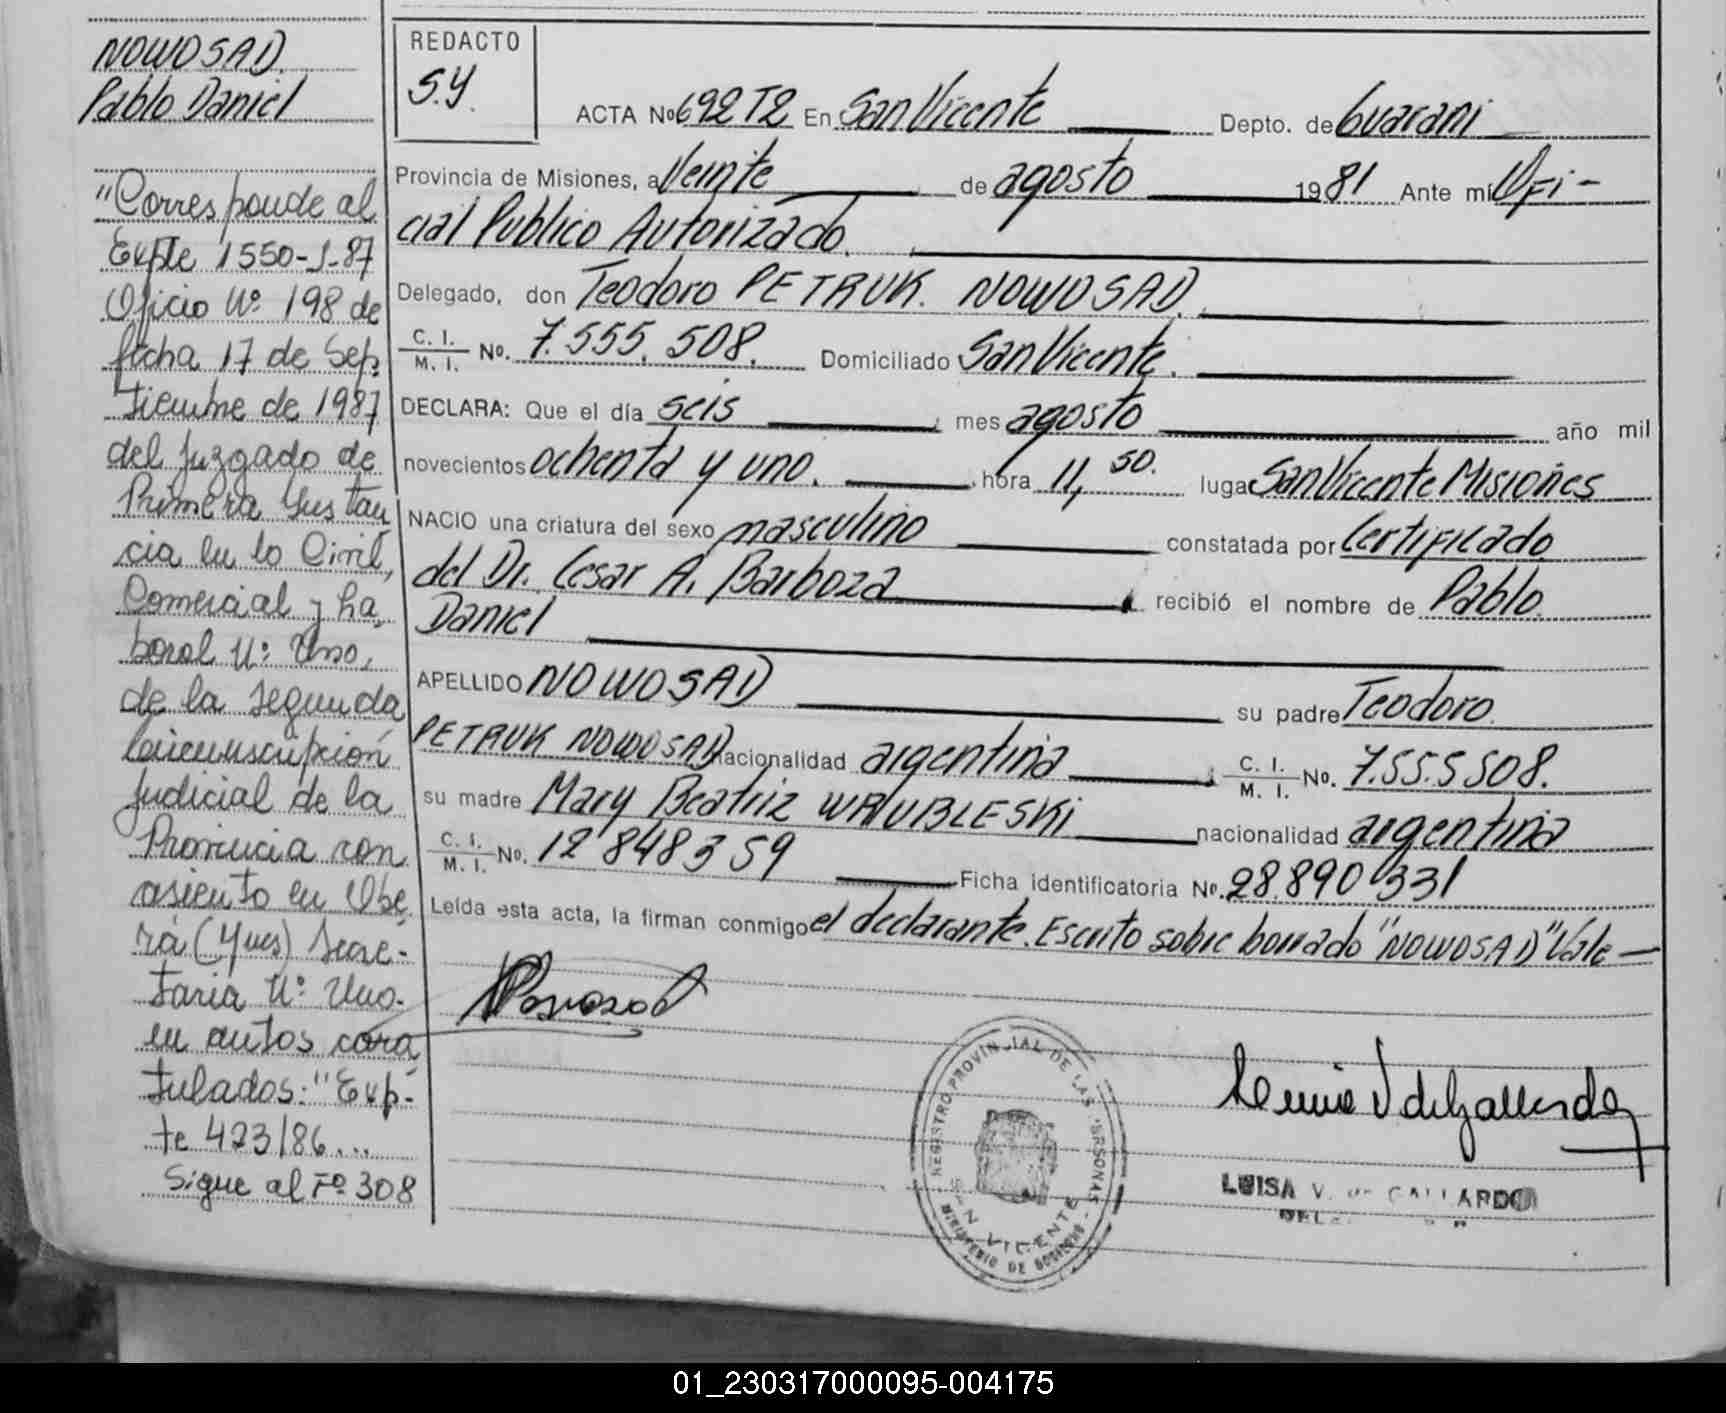 NOWOSAD
Pablo Daniel
"Corresponde al
Expte 1550-J-87
Oficio Nº 198 de
fecha 17 de Sep
tiembre de 1987
del Juzgado de
Primera Instan
cia en lo Civil,
Comercial y La
boral Nº Uno,
de la segunda
Circunscripción
Judicial de la
Provincia con
asiento en Obe
rá (Mnes) Secre-
taria Nº Uno.
en autos cara
tulados: "Exp-
te 423/86...
Sigue al Fº 308
REDACTO
S.Y.
ACTA Nº 692 T2 En San Vicente Depto. de Guarani
Provincia de Misiones, a Veinte de agosto 1981 Ante mí Ofi-
cial Publico Autorizado.
Delegado, don Teodoro PETRUK. NOWOSAD.
C. I.
M. I. No. 7.555.508. Domiciliado San Vicente.
DECLARA: Que el día seis mes agosto año mil
novecientos ochenta y uno. hora 11,50. luga San Vicente Misiones
NACIO una criatura del sexo masculino constatada por Certificado
del Dr. Cesar A. Barboza recibió el nombre de Pablo
Daniel
APELLIDO NOWOSAD su padre Teodoro
PETRUK NOWOSAD nacionalidad argentina C. I.
M. I. No. 7.555508.
su madre Mary Beatriz WRUBLESKI nacionalidad argentina
C. I.
M. I. No. 12848359 Ficha identificatoria No. 28.890331
Leída esta acta, la firman conmigo el declarante. Escrito sobre borrado "NOWOSAD" Vale
REGISTRO PROVINCIAL DE LAS PERSONAS
SAN VICENTE
MINISTERIO DE GOBIERNO
LUISA V. de GALLARDO
01_230317000095-004175